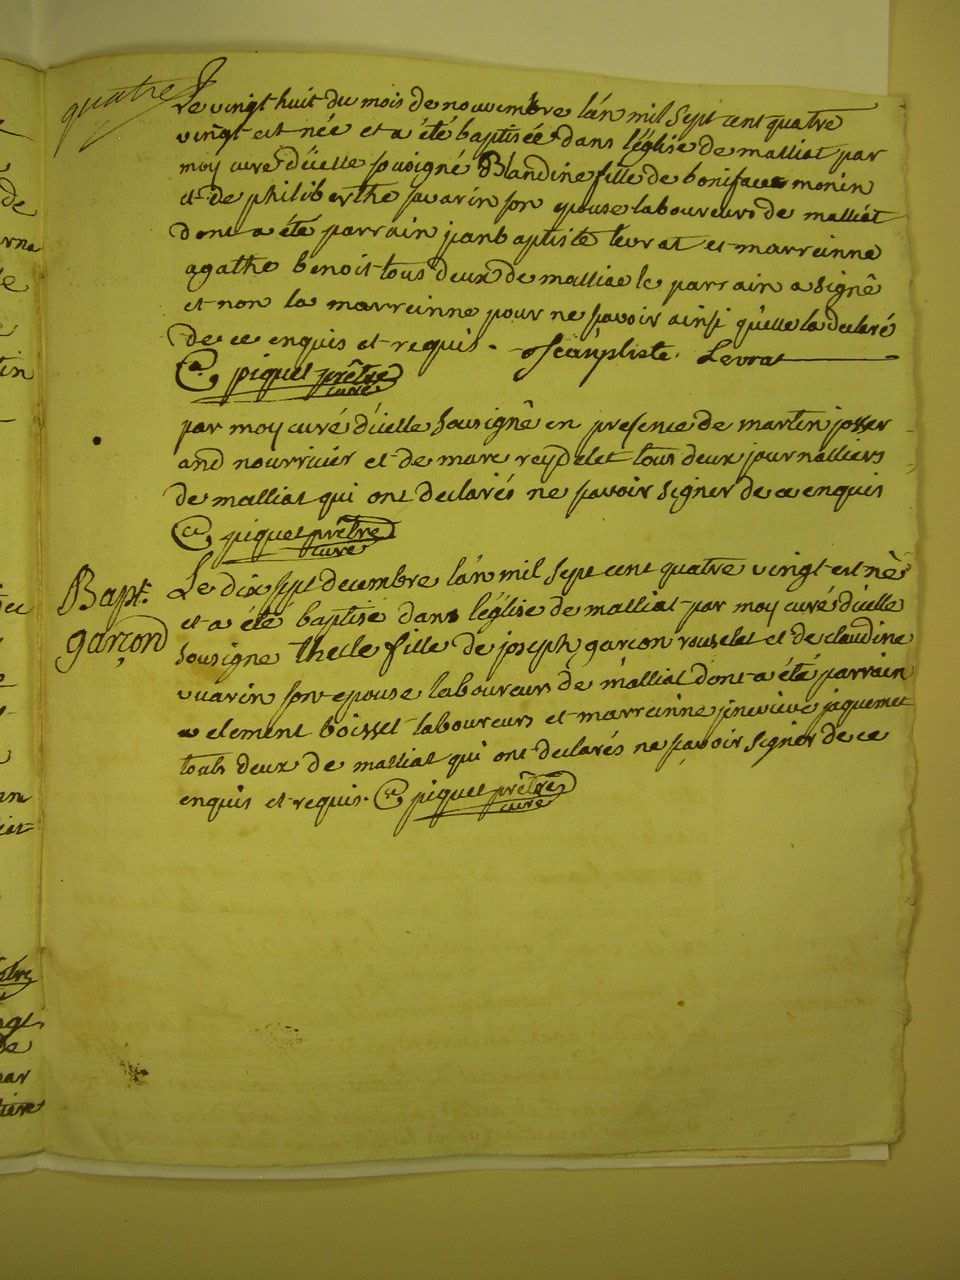 quatre
Le vingt huit du mois de nouvembre lán mil sept cent quatre
vingt est née et a été baptisée dans l'église de malliat par
moy curé d'icelle sousigné Blandine fille de boniface monin
et de philiberthe savarin son epouse laboureurs de malliat
dont a été parrain janbaptiste levrat et marreinne
agathe benoit tous deux de malliat le parrain a signê
et non la marreinne pour ne savoir ainsi quelle la declaré
de ce enquis et requis. Levrat
piquet prêtre
curé
par moy curé d'icelle sousignê en presence de martin josser
and nourricier et de marc reydelet tous deux journalliers
de malliat qui ont declarés ne savoir signer de ce enquis
piquet prêtre
curé
Bapt.
garçon
Le dix sept decembre lán mil sept cent quatre vingt est né
et a été baptisé dans l'église de malliat par moy curé d'icelle
sousigne thecle fille de joseph garcon rouselet et de claudine
vuarin son epouse laboureurs de malliat dont a été parrain
clement boisset laboureurs et marreinne jenevieve jaquemet
touts deux de malliat qui ont declarés ne savoir signer de ce
enquis et requis. piquet prêtre
curé